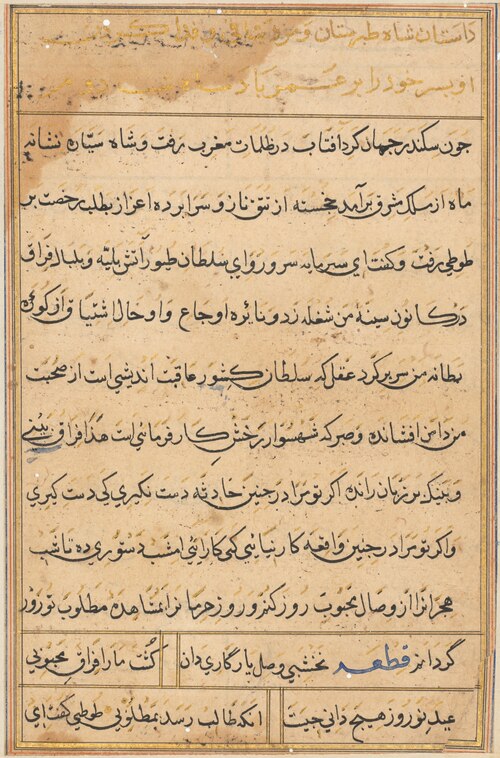 داستان شاه طبرستان و
او پسر خود را بر
چون سکندر جهان کرد افتاب در ظلمات مغرب رفت و شاه سیّاره نشانه
ماه از ملک مشرق برآمد خجسته از تتق ناز و سرا پرده اعزاز بطلب رخصت بر
طوطی رفت و کفت ای سرمایه سرور و ای سلطان طیور آتش بلیّه و بلبال فراق
در کانون سینهٔ من شعله زد و نائره اوجاع و اوحال اشتیاق از کوره
بطانه من سر بر کرد عقل که سلطان کشور عاقبت اندیشی است از صحبت
من دامن افشانده و صبر که شهسوار رخش کار فرمائی است هذا فراق بینی
و بینک بر زبان رانده اکر تو مرا در چنین حادثه دست نکیری کی دست کیری
و اکر تو مرا در چنین واقعه کار نیائی کی کار ائی امشب دستوری ده تا شب
هجرانرا از وصال محبوب روز کنم و روز حرمانرا بمشاهده مطلوب نوروز
کردانم قطعه نخشبی وصل یار کاری دان کشت ما را فراق محبوبی
عید نوروز هیچ دانی چیست انکه طالب رسد بمطلوبی طوطی کفت ای